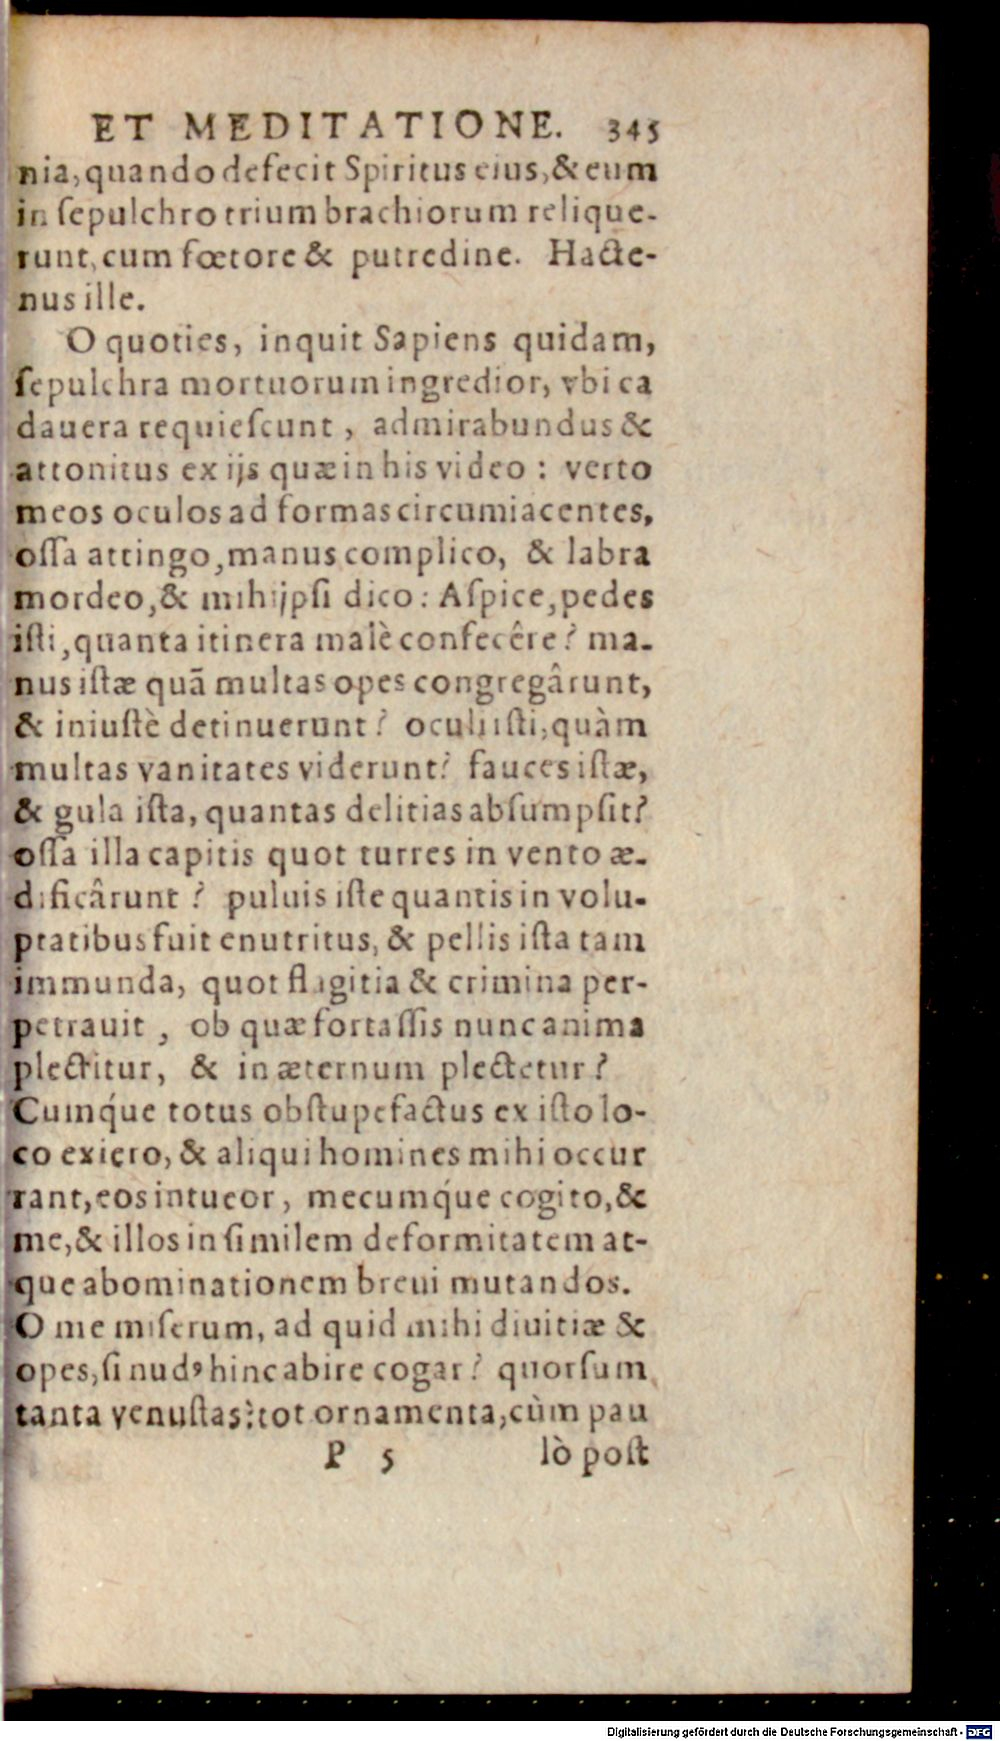 ET MEDITATIONE. 345
nia, quando defecit Spiritus eius, & eum
in ſepulchro trium brachiorum relique-
runt, cum fœtore & putredine. Hacte-
nus ille.
O quoties, inquit Sapiens quidam,
ſepulchra mortuorum ingredior, vbi ca
dauera requieſcunt, admirabundus &
attonitus ex ijs quæ in his video: verto
meos oculos ad formas circumiacentes,
oſſa attingo, manus complico, & labra
mordeo, & mihijpſi dico: Aſpice, pedes
iſti, quanta itinera malè confecêre? ma-
nus iſtæ quā multas opes congregârunt,
& iniuſtè detinuerunt? oculi iſti, quàm
multas vanitates viderunt? fauces iſtæ,
& gula iſta, quantas delitias abſumpſit?
oſſa illa capitis quot turres in vento æ-
dificârunt? puluis iſte quantis in volu-
ptatibus fuit enutritus, & pellis iſta tam
immunda, quot flagitia & crimina per-
petrauit, ob quæ fortaſſis nunc anima
plectitur, & in æternum plectetur?
Cumq́ue totus obſtupefactus ex iſto lo-
co exiero, & aliqui homines mihi occur
rant, eos intueor, mecumq́ue cogito, &
me, & illos in ſimilem deformitatem at-
que abominationem breui mutandos.
O me miſerum, ad quid mihi diuitiæ &
opes, ſi nudꝰ hinc abire cogar? quorſum
tanta venuſtas? tot ornamenta, cùm pau
P 5 lò poſt
Digitalisierung gefördert durch die Deutsche Forschungsgemeinschaft - DFG